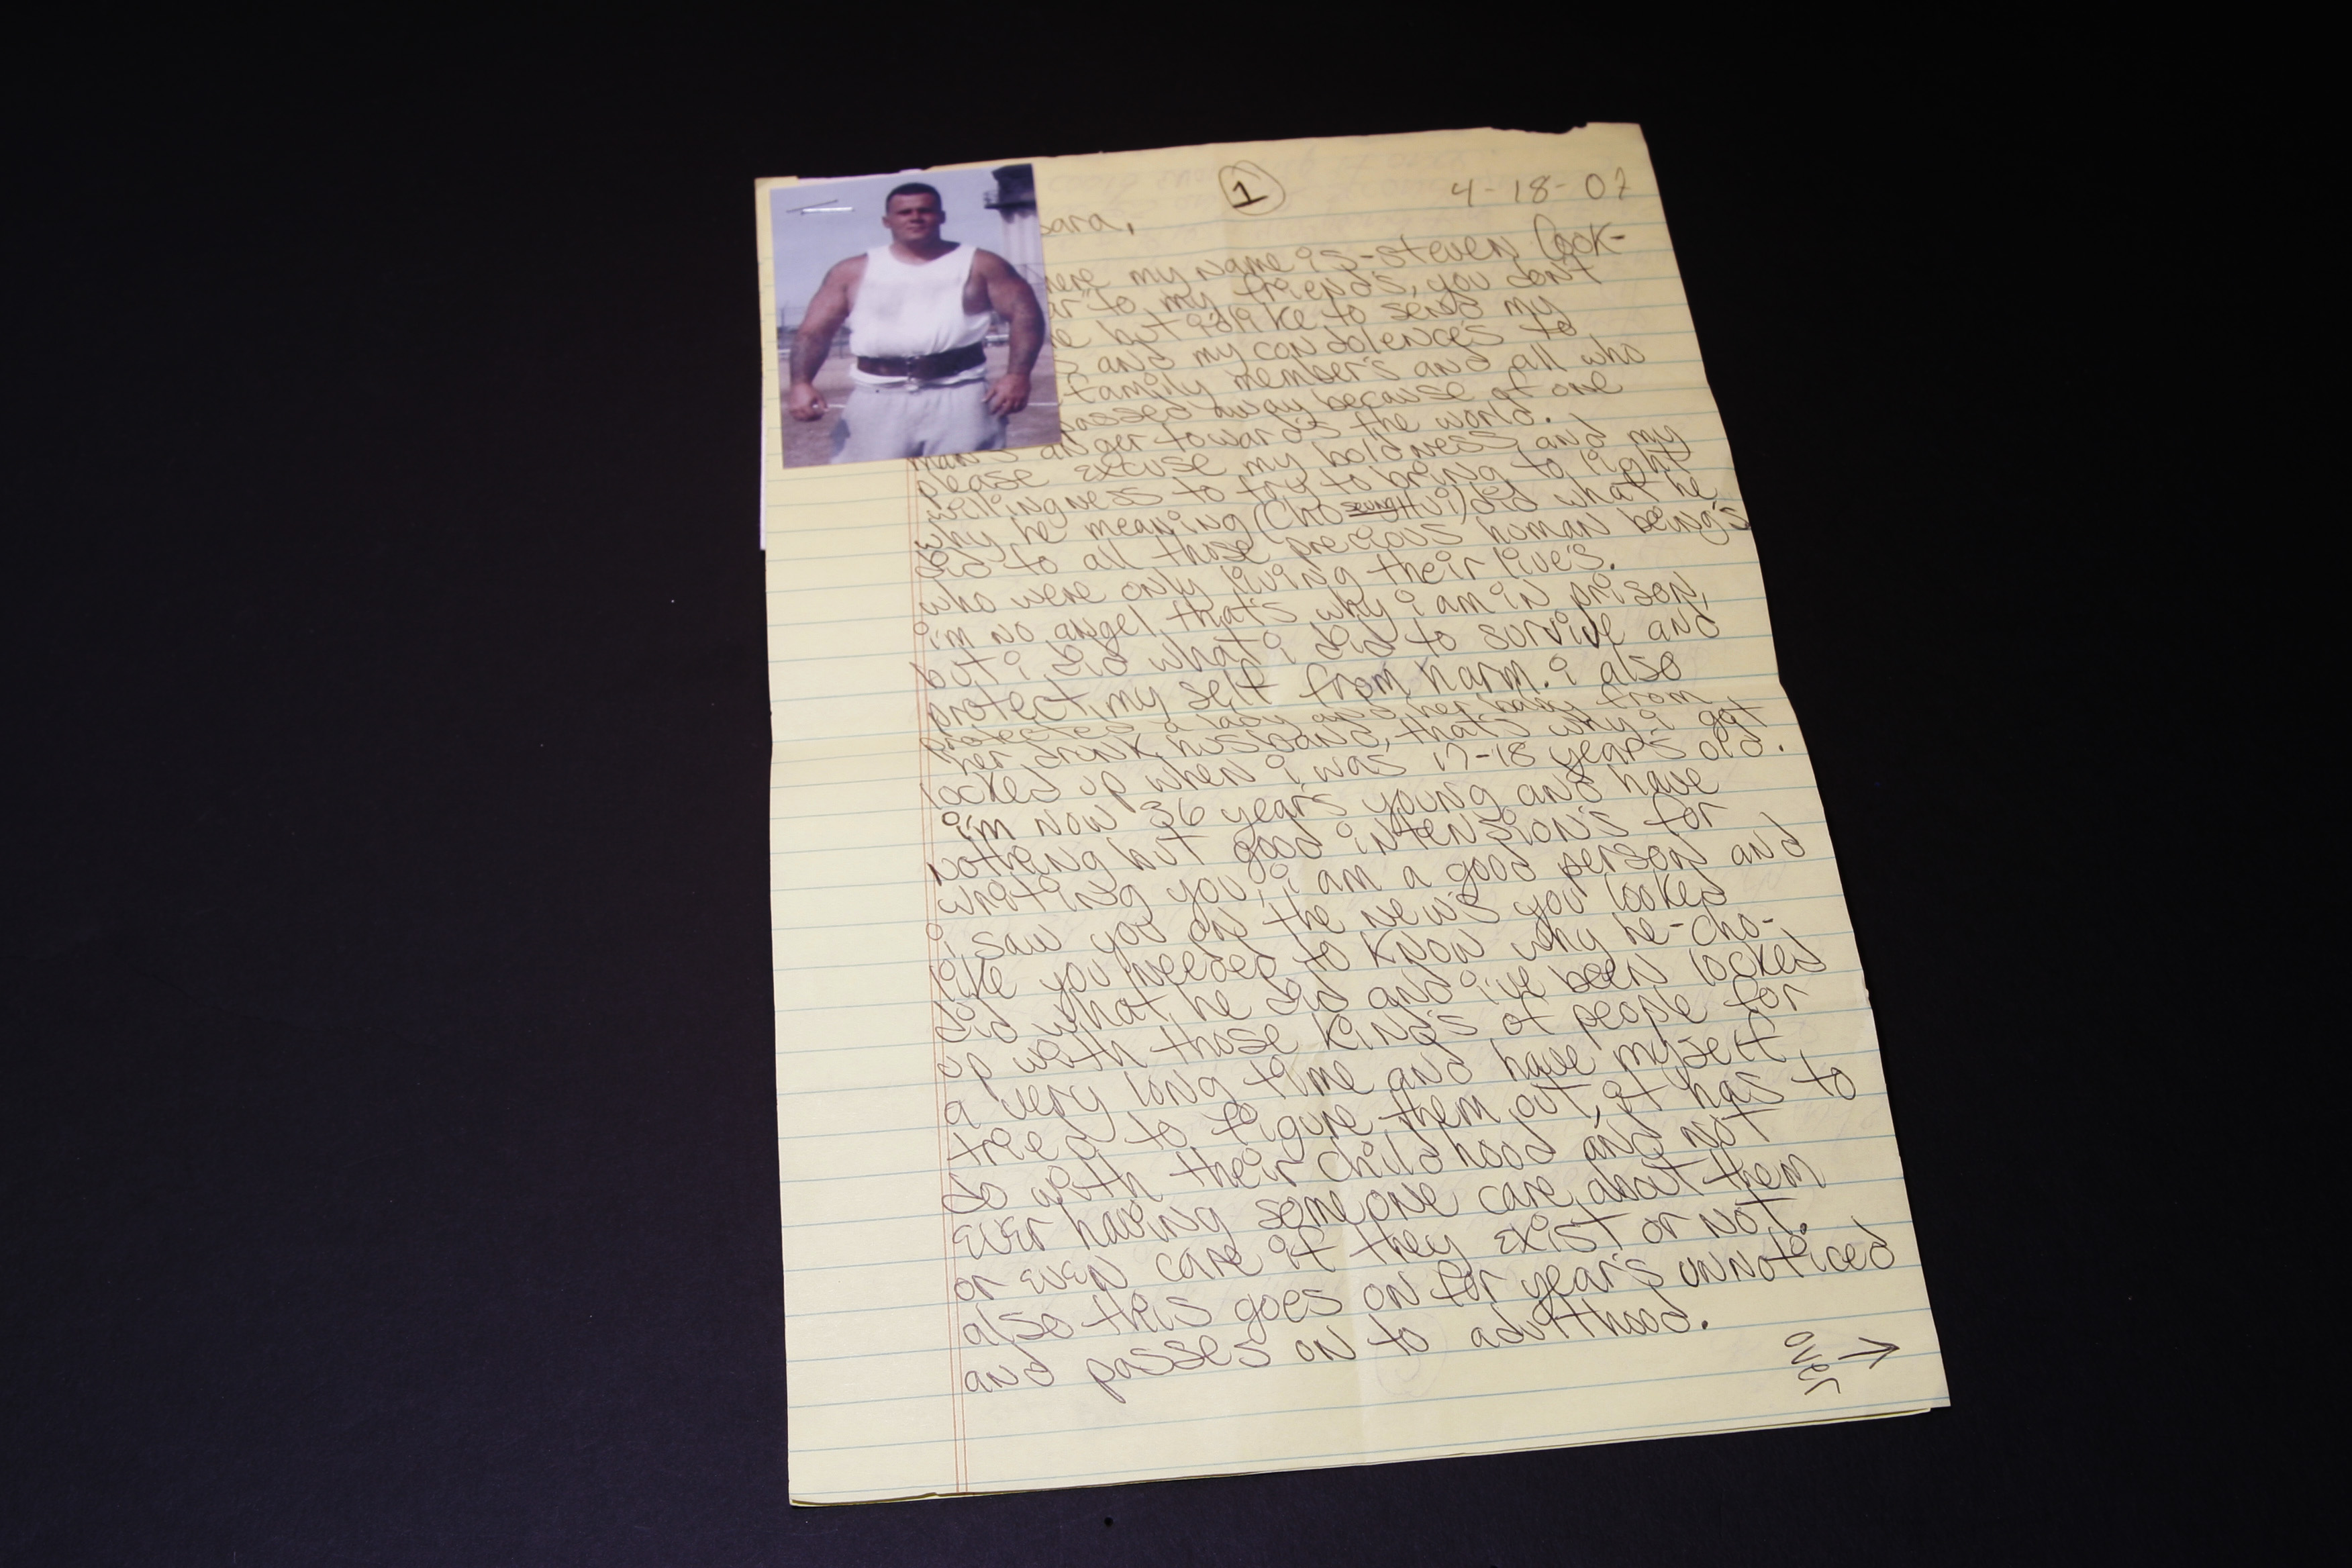 1
4-18-07
sara,
here my name is-steven Cook-
ar" to my friend's, you don't
e but i'd like to send my
s and my condolence's to
family member's and all who
passed away because of one
man's anger toward's the world.
please excuse my boldness and my
willingness to try to bring to light
why he meaning (Cho seung Hui) did what he
did to all those precious human being's
who were only living their live's.
i'm no angel that's why i am in prison,
but i did what i did to survive and
protect my self from harm. i also
protected a lady and her baby from
her drunk husband, that's why i got
locked up when i was 17-18 year's old.
i'm now 36 year's young and have
nothing but good intension's for
writing you, i am a good person and
i saw you on the new's you looked
like you needed to know why he-cho-
did what he did and i've been locked
up with those kind's of people for
a very long time and have myself
tried to figure them out, it has to
do with their childhood and not
ever having someone care about them
or even care if they exist or not.
also this goes on for year's unnoticed
and passes on to adulthood.
over →